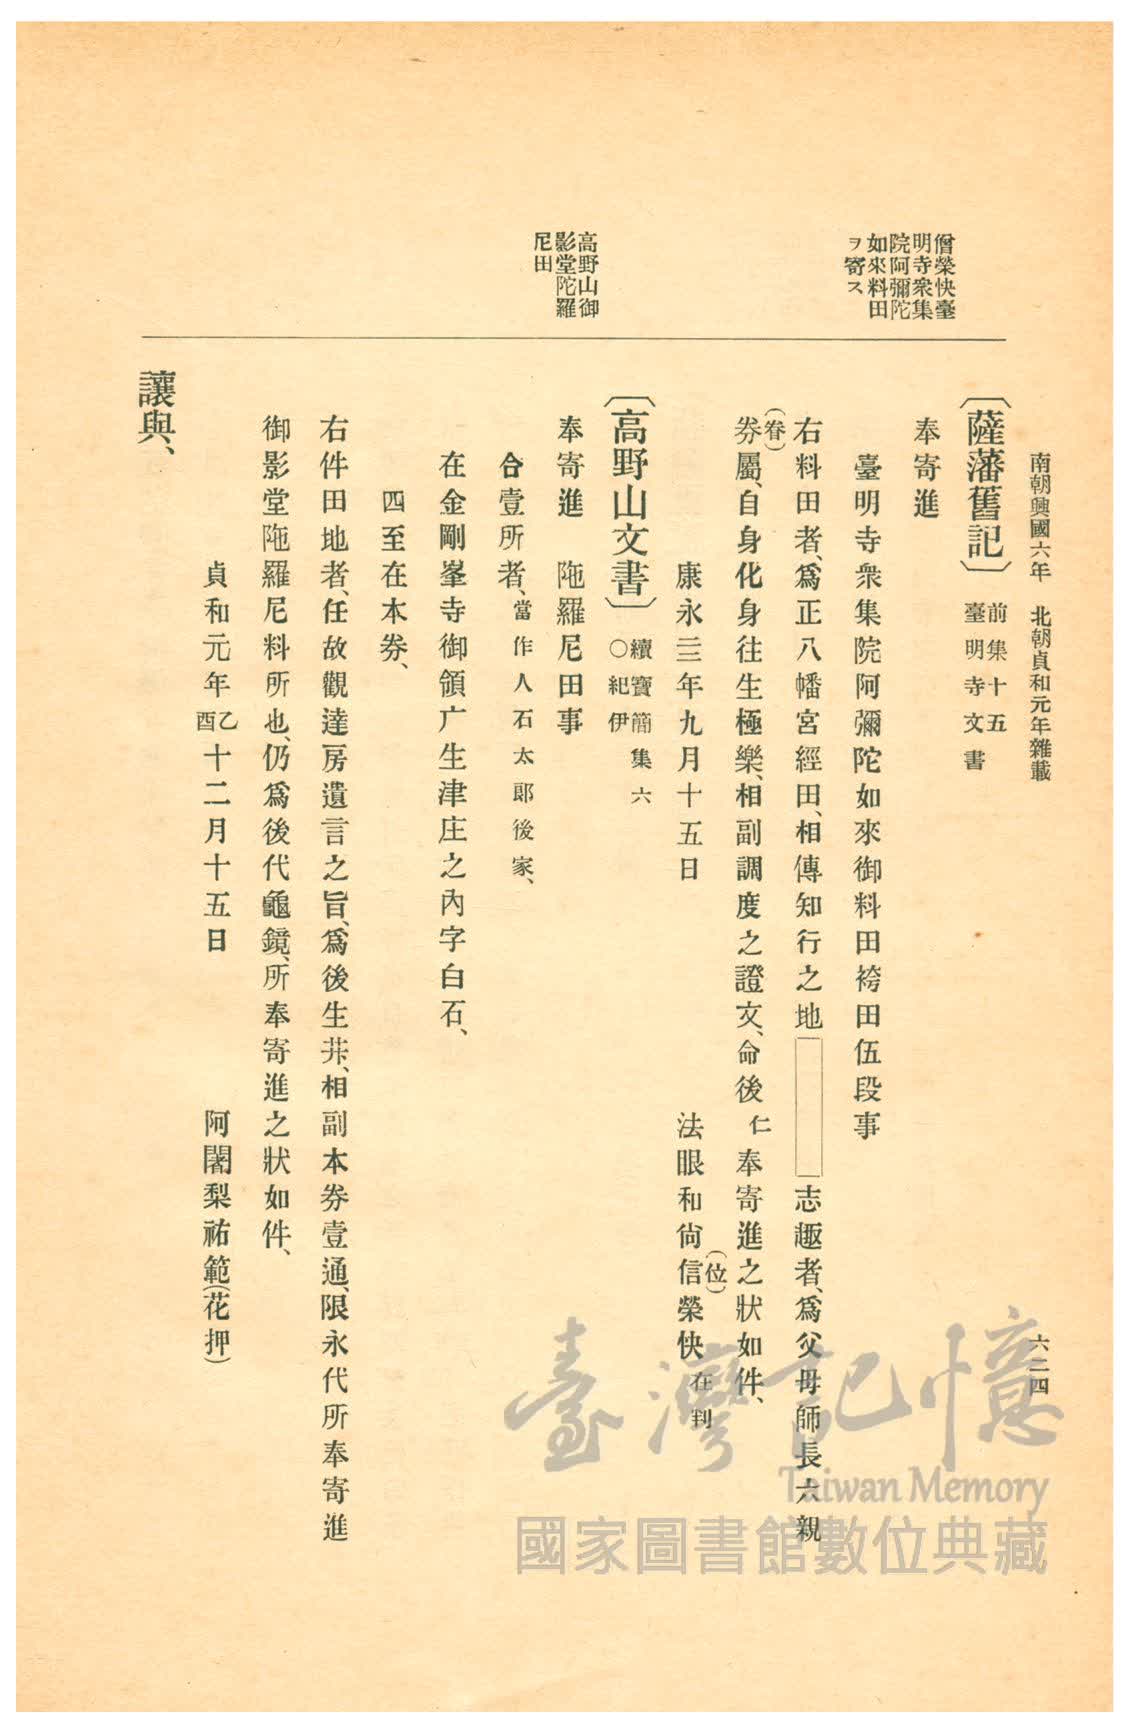 南朝興國六年 北朝貞和元年雜載
六二四
僧榮快臺
明寺衆集
院阿彌陀
如來料田
ヲ寄ス
高野山御
影堂陀羅
尼田
〔薩藩舊記〕前集十五
臺明寺文書
奉寄進
臺明寺衆集院阿彌陀如來御料田袴田伍段事
右料田者、爲正八幡宮經田、相傳知行之地 志趣者、爲父母師長六親
(眷)
劵屬、自身化身往生極樂、相副調度之證文、命後仁奉寄進之狀如件、
康永三年九月十五日 法眼和尙信榮快在判
(位)
〔高野山文書〕續寶簡集六
○紀伊
奉寄進 陁羅尼田事
合壹所者、當作人石太郎後家、
在金剛峯寺御領广生津庄之內字白石、
四至在本劵、
右件田地者、任故觀達房遺言之旨、爲後生井、相副本劵壹通、限永代所奉寄進
御影堂陁羅尼料所也、仍爲後代龜鏡、所奉寄進之狀如件、
貞和元年乙酉十二月十五日 阿闍梨祐範(花押)
讓與、
臺灣記憶
Taiwan Memory
國家圖書館數位典藏